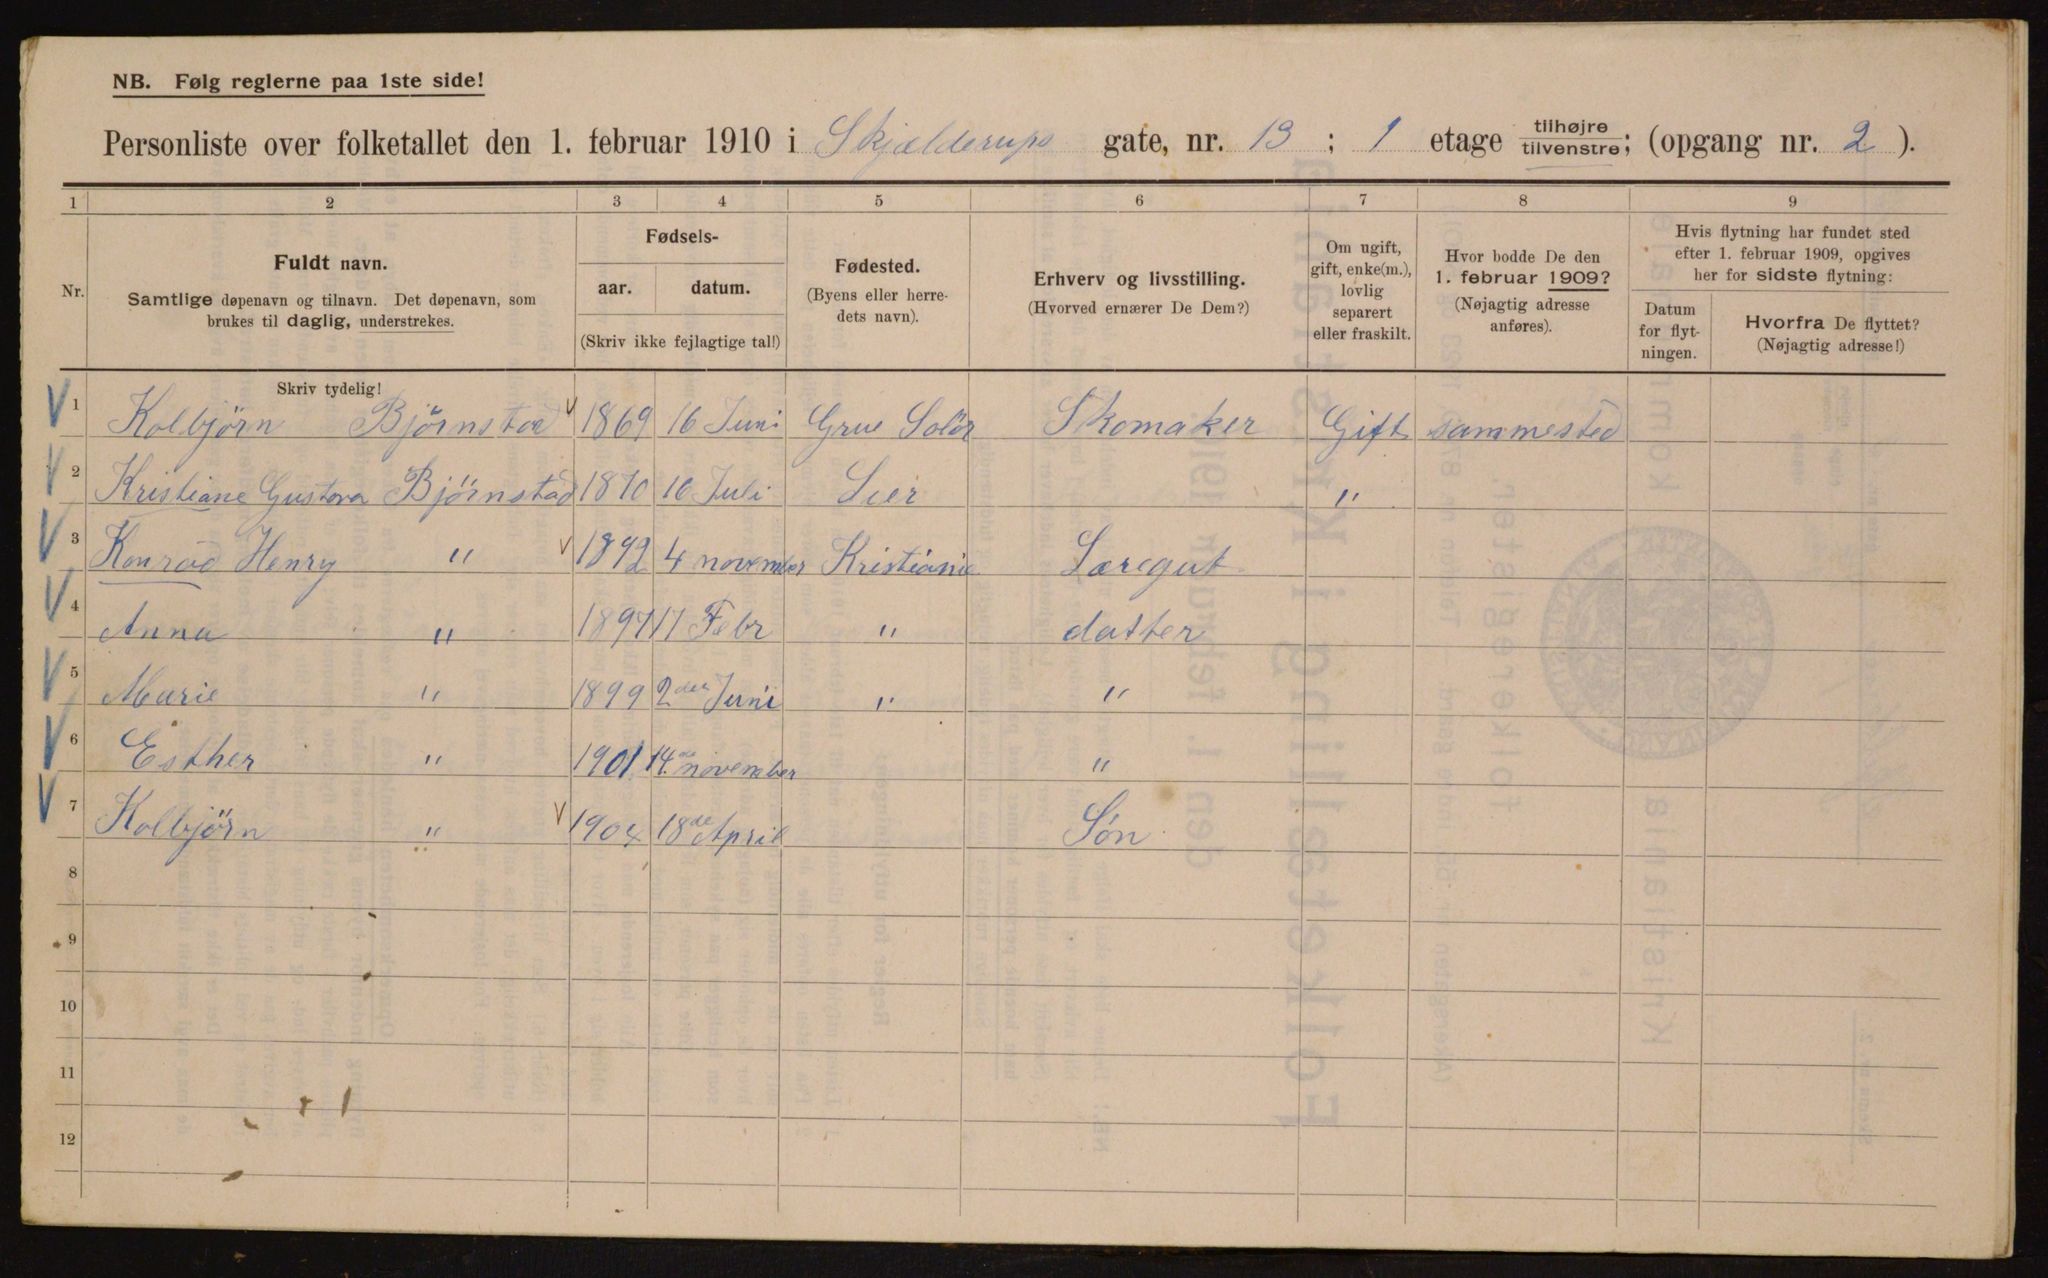 NB. Følg reglerne paa 1ste side!
Personliste over folketallet den 1. februar 1910 i Skjælderups gate, nr. 13 ; 1 etage tilhøjre tilvenstre; (opgang nr. 2 ).
1 2 3 4 5 6 7 8 9
Nr.
Fuldt navn.
Samtlige døpenavn og tilnavn. Det døpenavn, som
brukes til daglig, understrekes.
Fødsels-
aar. datum.
(Skriv ikke fejlagtige tal!)
Fødested.
(Byens eller herre-
dets navn).
Erhverv og livsstilling.
(Hvorved ernærer De Dem?)
Om ugift,
gift, enke(m.),
lovlig
separert
eller fraskilt.
Hvor bodde De den
1. februar 1909?
(Nøjagtig adresse
anføres).
Hvis flytning har fundet sted
efter 1. februar 1909, opgives
her for sidste flytning:
Datum
for flyt-
ningen.
Hvorfra De flyttet?
(Nøjagtig adresse!)
Skriv tydelig!
1 Kolbjörn Björnstad 1869 16 Juni Grue Solör Skomaker Gift sammested
2 Kristiane Gustava Björnstad 1870 16 Juli Lier "
3 Konrad Henry " 1892 4 november Kristiania Læregut
4 Anna " 1897 17 Febr " datter
5 Marie " 1899 2den Juni " "
6 Esther " 1901 14de november "
7 Kolbjörn " 1904 18de April Sön
8
9
10
11
12